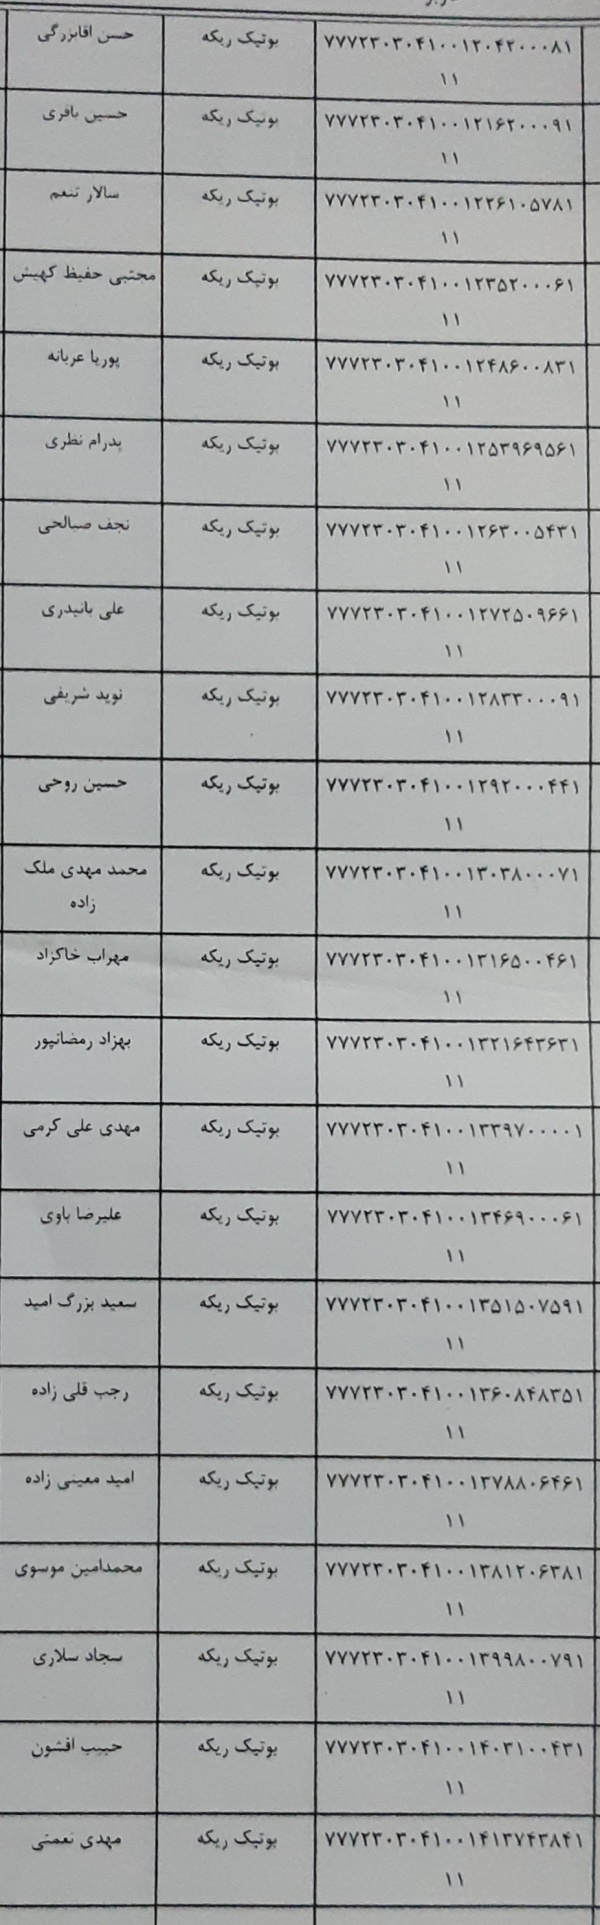 ۷۷۷۲۳۰۳۰۴۱۰۰۱۲۰۴۲۰۰۰۸۱ بوتیک ریکه حسن اقابزرگی
۱۱
۷۷۷۲۳۰۳۰۴۱۰۰۱۲۱۶۲۰۰۰۹۱ بوتیک ریکه حسین باقری
۱۱
۷۷۷۲۳۰۳۰۴۱۰۰۱۲۲۶۱۰۵۷۸۱ بوتیک ریکه سالار تنعم
۱۱
۷۷۷۲۳۰۳۰۴۱۰۰۱۲۳۵۲۰۰۰۶۱ بوتیک ریکه مجتبی حفیظ کهیش
۱۱
۷۷۷۲۳۰۳۰۴۱۰۰۱۲۴۸۶۰۰۸۳۱ بوتیک ریکه پوریا عربانه
۱۱
۷۷۷۲۳۰۳۰۴۱۰۰۱۲۵۳۹۶۹۵۶۱ بوتیک ریکه پدرام نظری
۱۱
۷۷۷۲۳۰۳۰۴۱۰۰۱۲۶۳۰۰۵۴۳۱ بوتیک ریکه نجف صالحی
۱۱
۷۷۷۲۳۰۳۰۴۱۰۰۱۲۷۲۵۰۹۶۶۱ بوتیک ریکه علی بانیدری
۱۱
۷۷۷۲۳۰۳۰۴۱۰۰۱۲۸۳۳۰۰۰۹۱ بوتیک ریکه نوید شریفی
۱۱
۷۷۷۲۳۰۳۰۴۱۰۰۱۲۹۲۰۰۰۴۴۱ بوتیک ریکه حسین روحی
۱۱
۷۷۷۲۳۰۳۰۴۱۰۰۱۳۰۳۸۰۰۰۷۱ بوتیک ریکه محمد مهدی ملک
۱۱ زاده
۷۷۷۲۳۰۳۰۴۱۰۰۱۳۱۶۵۰۰۴۶۱ بوتیک ریکه مهراب خاکزاد
۱۱
۷۷۷۲۳۰۳۰۴۱۰۰۱۳۲۱۶۴۳۶۳۱ بوتیک ریکه بهزاد رمضانپور
۱۱
۷۷۷۲۳۰۳۰۴۱۰۰۱۳۳۹۷۰۰۰۰۱ بوتیک ریکه مهدی علی کرمی
۱۱
۷۷۷۲۳۰۳۰۴۱۰۰۱۳۴۶۹۰۰۰۶۱ بوتیک ریکه علیرضا باوی
۱۱
۷۷۷۲۳۰۳۰۴۱۰۰۱۳۵۱۵۰۷۵۹۱ بوتیک ریکه سعید بزرگ امید
۱۱
۷۷۷۲۳۰۳۰۴۱۰۰۱۳۶۰۸۴۸۳۵۱ بوتیک ریکه رجب قلی زاده
۱۱
۷۷۷۲۳۰۳۰۴۱۰۰۱۳۷۸۸۰۶۴۶۱ بوتیک ریکه امید معینی زاده
۱۱
۷۷۷۲۳۰۳۰۴۱۰۰۱۳۸۱۲۰۶۳۸۱ بوتیک ریکه محمدامین موسوی
۱۱
۷۷۷۲۳۰۳۰۴۱۰۰۱۳۹۹۸۰۰۷۹۱ بوتیک ریکه سجاد سلاری
۱۱
۷۷۷۲۳۰۳۰۴۱۰۰۱۴۰۳۱۰۰۴۳۱ بوتیک ریکه حبیب افشون
۱۱
۷۷۷۲۳۰۳۰۴۱۰۰۱۴۱۳۷۴۳۸۴۱ بوتیک ریکه مهدی نعمتی
۱۱